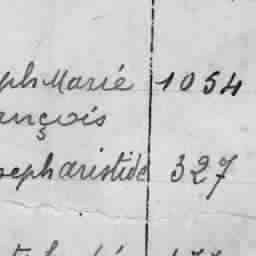 ph Marie 1054
ançois
seph aristide 327